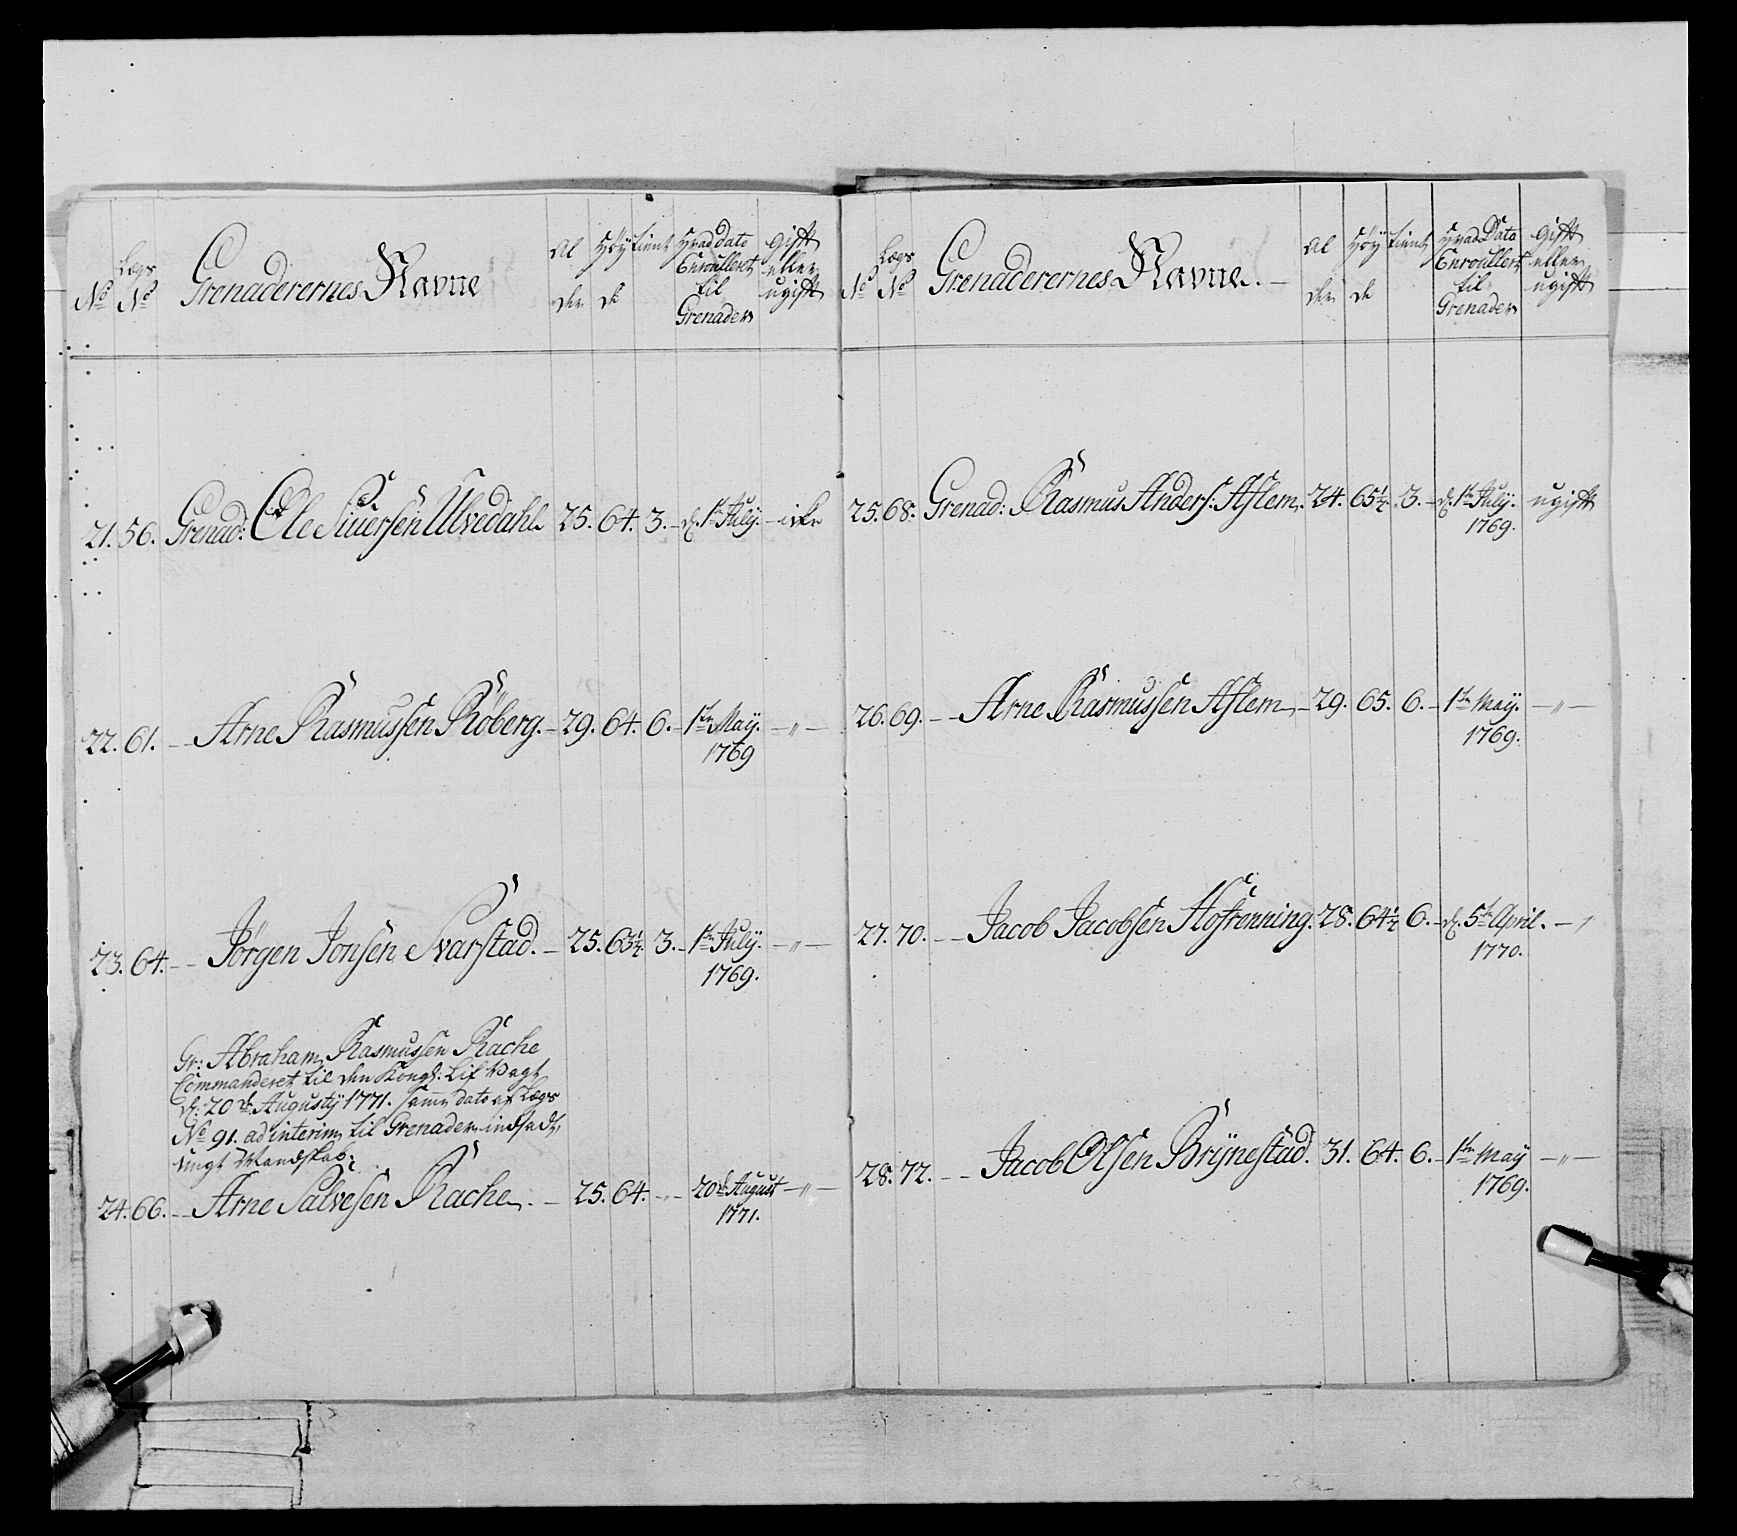 No Legs No Grenaderernes Navne Al der Høy de tient Hvad Dato Enroullert til Grenader gift eller ugift
21. 56. Grenad: Ole Siuersen Ulvedahl 25. 64. 3. d: 1te July.
22. 61. Arne Rasmussen Røberg. 29. 64. 6. 1te May. 1769 — " —
23. 64. Jørgen Jonsen Svarstad. 25. 63½ 3. 1te July. 1769. — " —
Gr: Abraham Rasmussen Rache
Commanderet til den Kongl: Lif Vagt
d: 20de Augusty 1771. samme dato af Legs
No 91. ad interim til Grenader indsadt,
ungt Mandskab:
24. 66. Arne Salvesen Rache. 25. 64. — " — 20de August 1771. — " —
No Legs No Grenaderernes Navne. Al der Høy de tient Hvad Dato Enroullert til Grenader gift eller ugift
25. 68. Grenad: Rasmus Anders: Aslem. 24. 65½. 3. d: 1te July. 1769. ugift
26. 69. Arne Rasmussen Aslem 29. 65. 6. 1te May. 1769. — " —
27. 70. Jacob Jacobsen 28. 64½ 6. d: 5te April. 1770. — " —
28. 72. Jacob Olsen Brÿnestad. 31. 64. 6. 1te May 1769. — " —